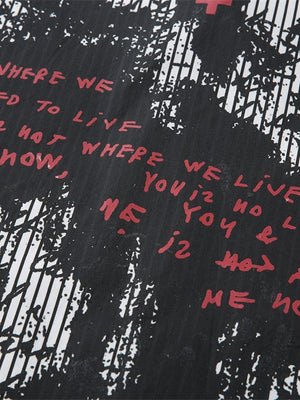 WHERE WE
ED TO LIVE
NOT WHERE WE LIVE
NOW, YOU iz NO L
NE YOU &
iz HOT
ME NO